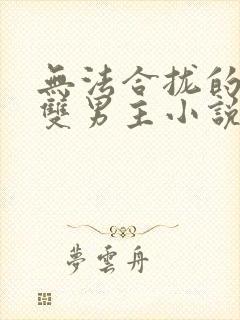 無法合拢的
雙男主小説
夢雲舟